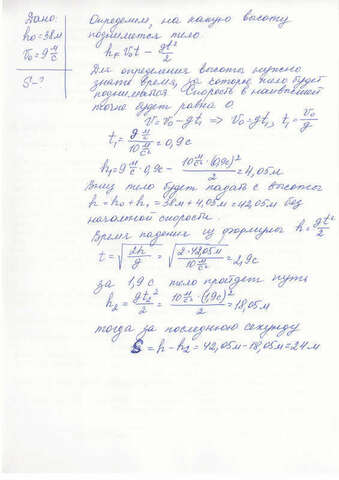 Дано:
h₀=38м
V₀=9 м/с
S-?
Определим, на какую высоту
поднимется тело.
h₁=V₀t - gt²/2
Для определения высоты нужно
знать время, за которое тело будет
подниматься. Скорость в наивысшей
точке будет равна 0
V=V₀-gt₁ => V₀=gt₁, t₁=V₀/g
t₁= 9 м/с / 10 м/с² =0,9с
h₁=9 м/с·0,9с- 10 м/с²·(0,9с)²/2 =4,05м
Вниз тело будет падать с высоты
h=h₀+h₁=38м+4,05м=42,05м без
начальной скорости.
Время падения из формулы h=gt²/2
t=√(2h/g) =√(2·42,05м / 10 м/с²) =2,9с
за 1,9с тело пройдет путь
h₂= gt₂²/2 = 10 м/с²·(1,9с)²/2 =18,05м
тогда за последнюю секунду
S=h-h₂=42,05м-18,05м=24м